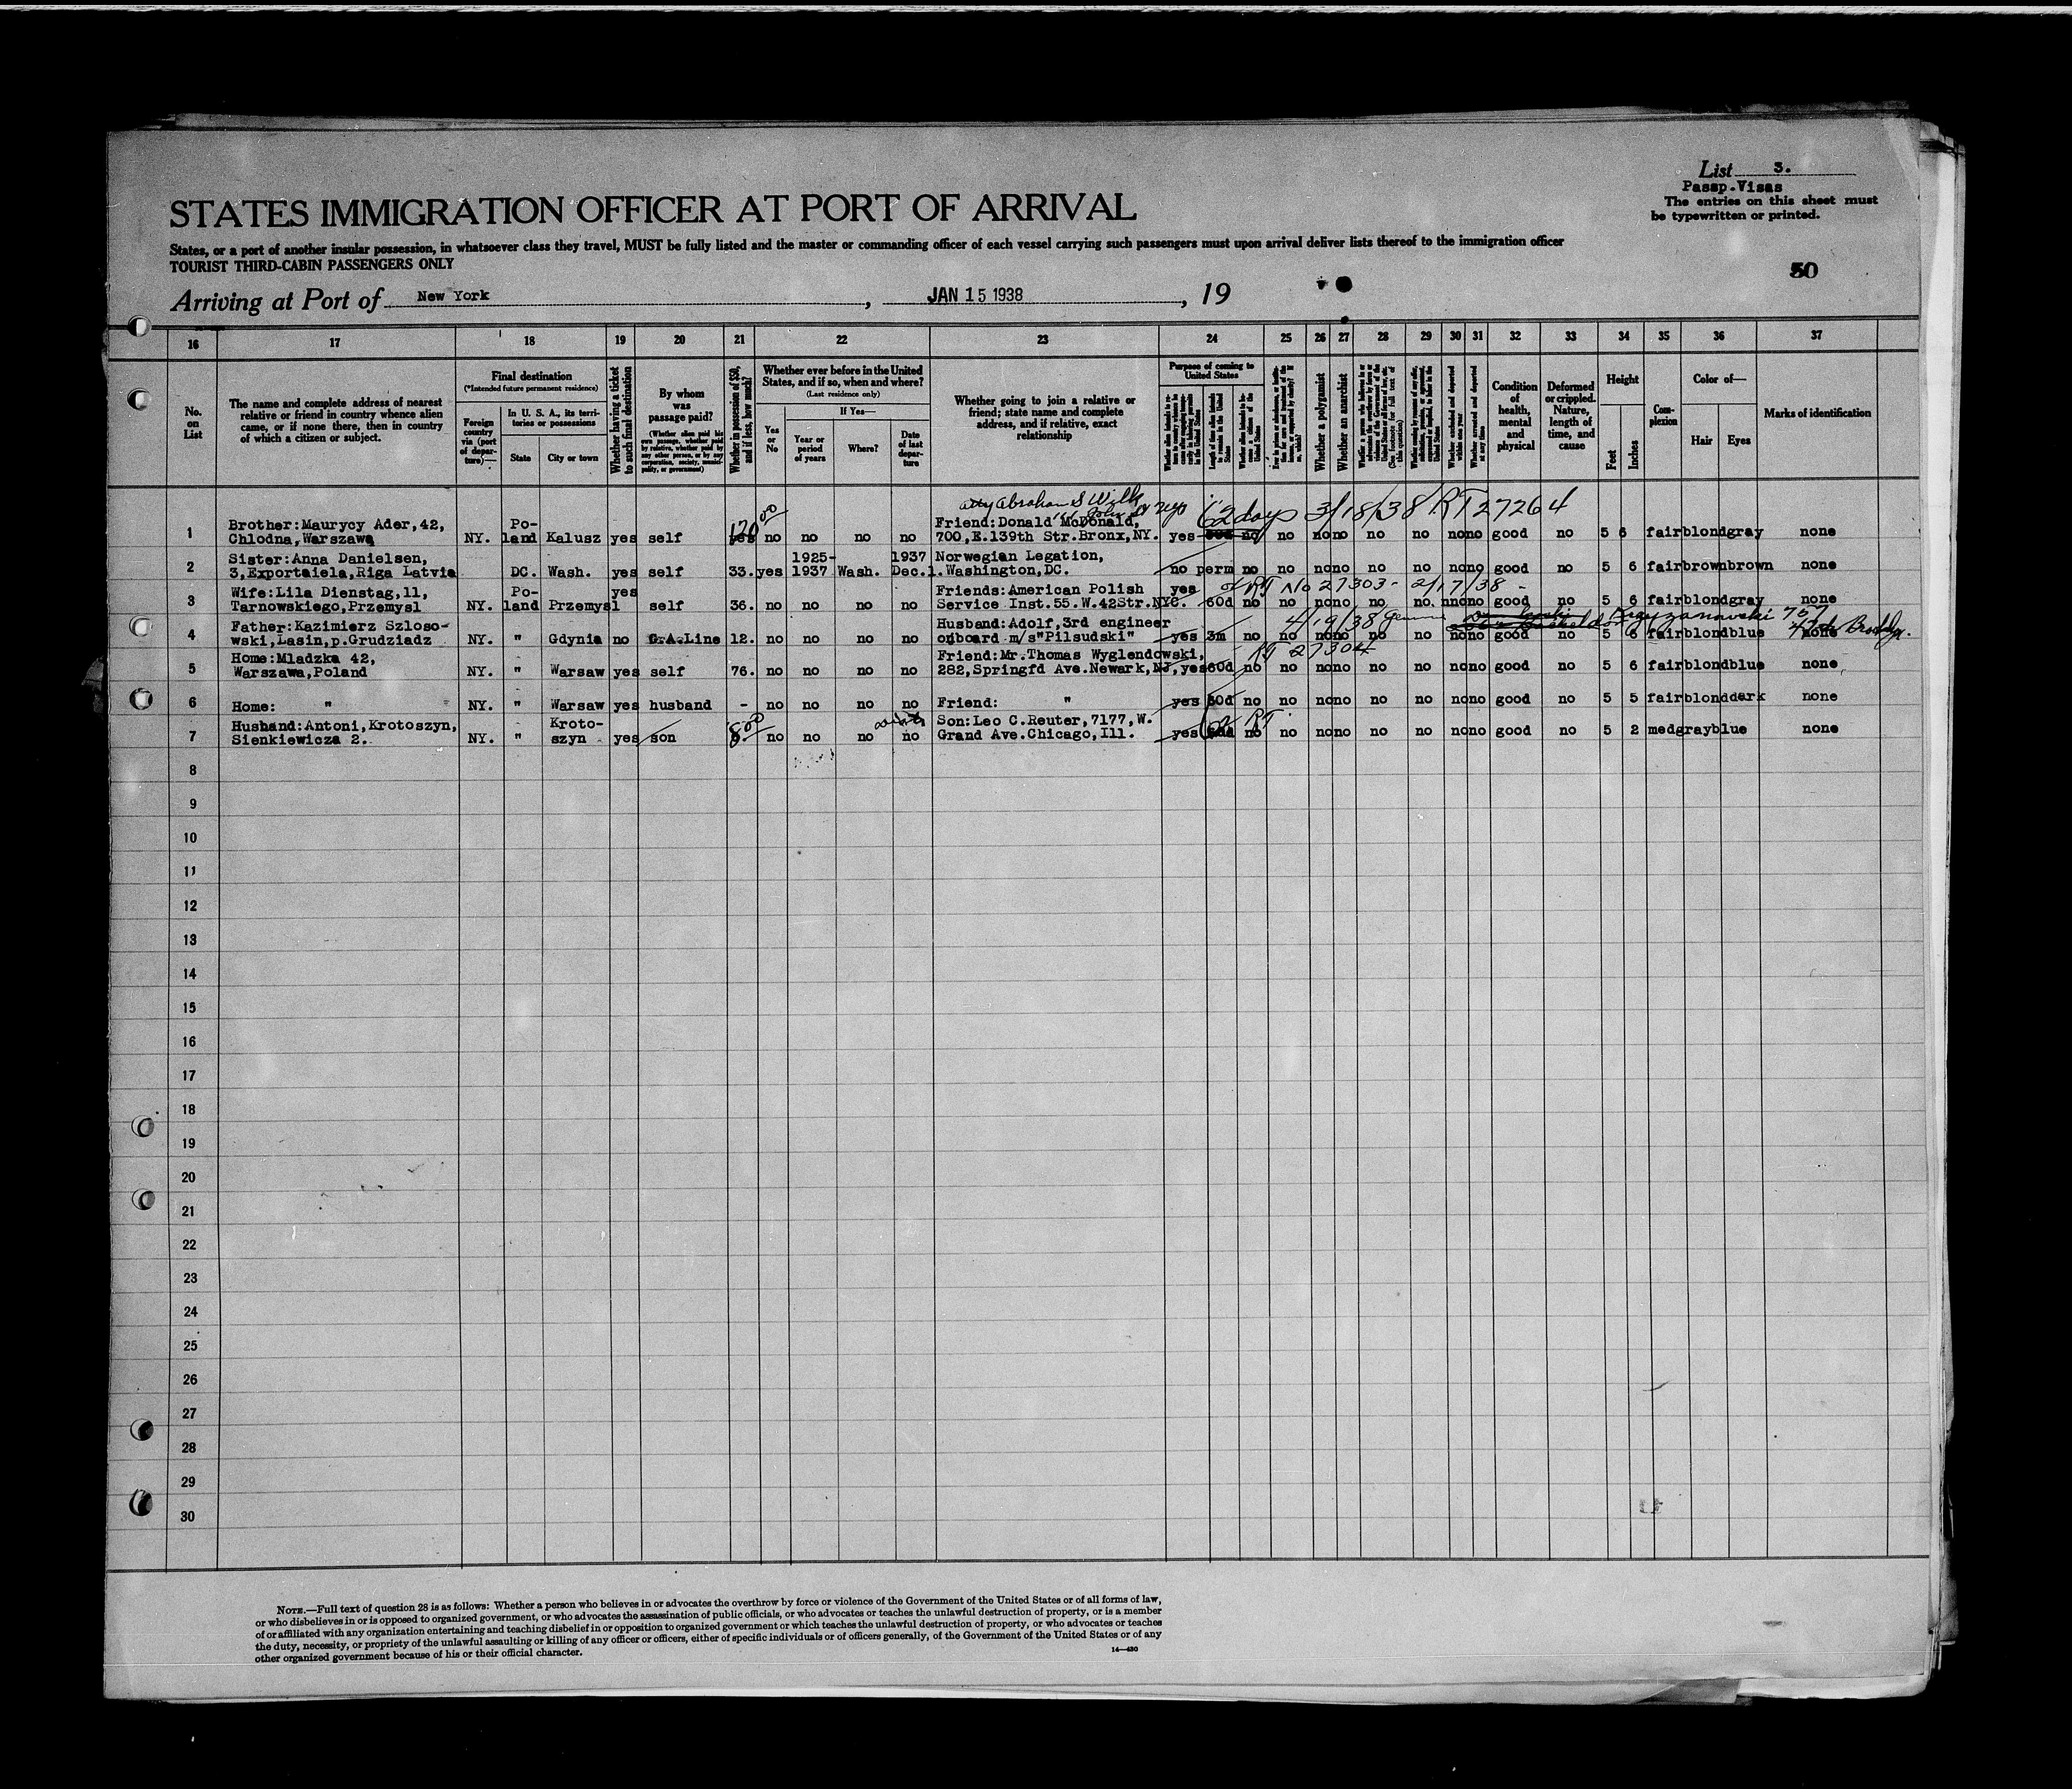 List 3.
Passp.Visas
The entries on this sheet must
be typewritten or printed.
STATES IMMIGRATION OFFICER AT PORT OF ARRIVAL
States, or a port of another insular possession, in whatsoever class they travel, MUST be fully listed and the master or commanding officer of each vessel carrying such passengers must upon arrival deliver lists thereof to the immigration officer
TOURIST THIRD-CABIN PASSENGERS ONLY
50
Arriving at Port of New York, JAN 15 1938, 19
16 17 18 19 20 21 22 23 24 25 26 27 28 29 30 31 32 33 34 35 36 37
No. on List
The name and complete address of nearest
relative or friend in country whence alien
came, or if none there, then in country
of which a citizen or subject.
Final destination
(*Intended future permanent residence)
Foreign country via (port of departure)—
In U. S. A., its territories or possessions
State
City or town
Whether having a ticket to such final destination
By whom was passage paid?
(Whether alien paid his own passage, whether paid by relative, whether paid by any other person, or by any corporation, society, municipality, or government)
Whether in possession of $50, and if less, how much?
Whether ever before in the United
States, and if so, when and where?
(Last residence only)
Yes or No
If Yes—
Year or period of years
Where?
Date of last departure
Whether going to join a relative or
friend; state name and complete
address, and if relative, exact
relationship
Purpose of coming to United States
Length of time alien intends to remain in the United States
Whether a polygamist
Whether an anarchist
(See footnote for full text of this question)
Whether arrested and deported at any time
Condition of health, mental and physical
Deformed or crippled. Nature, length of time, and cause
Height
Feet
Inches
Complexion
Color of—
Hair
Eyes
Marks of identification
atty Abraham S Wilk
62 days 3/18/38 RT 27264
1 Brother:Maurycy Ader,42, Po- 120 00 Friend:Donald McDonald,
Chlodna,Warszawa NY. land Kalusz yes self yes no no no no 700,E.139th Str.Bronx,NY. yes 60d no no no no no no no no good no 5 6 fair blond gray none
2 Sister:Anna Danielsen, 1925- 1937 Norwegian Legation,
3,Exportaiela,Riga Latvia DC. Wash. yes self 33. yes 1937 Wash. Dec.1. Washington,DC. no perm no no no no no no no no good no 5 6 fair brown brown none
3 Wife:Lila Dienstag,11, Po- yes Friends:American Polish yes RT No 27303- 2/17/38 -
Tarnowskiego,Przemysl NY. land Przemysl self 36. no no no no Service Inst.55.W.42Str.NYC. 60d no no no no no no. no no good no 5 6 fair blond gray none
4 Father:Kazimierz Szloso- Husband:Adolf,3rd engineer 4/9/38 757
wski,Lasin,p.Grudziadz NY. " Gdynia no G.A.Line 12. no no no no onboard m/s"Pilsudski" yes 3m no no no no no no no no good no 5 6 fair blond blue none
5 Home:Mladzka 42, Friend:Mr.Thomas Wyglendowski, RT 27304
Warszawa,Poland NY. " Warsaw yes self 76. no no no no 282,Springfd Ave.Newark,NJ, yes 60d no no no no no no no no good no 5 6 fair blond blue none
6 Home: " NY. " Warsaw yes husband - no no no no Friend: " yes 60d no no no no no no no no good no 5 5 fair blond dark none
7 Husband:Antoni,Krotoszyn, Kroto- 8 00 Son:Leo C.Reuter,7177,W. 62 RT
Sienkiewicza 2. NY. " szyn yes son no no no no Grand Ave.Chicago,Ill. yes 60d no no no no no no no no good no 5 2 med gray blue none
8
9
10
11
12
13
14
15
16
17
18
19
20
21
22
23
24
25
26
27
28
29
30
NOTE.—Full text of question 28 is as follows: Whether a person who believes in or advocates the overthrow by force or violence of the Government of the United States or of all forms of law,
or who disbelieves in or is opposed to organized government, or who advocates the assassination of public officials, or who advocates or teaches the unlawful destruction of property, or is a member
of or affiliated with any organization entertaining and teaching disbelief in or opposition to organized government or which teaches the unlawful destruction of property, or who advocates or teaches
the duty, necessity, or propriety of the unlawful assaulting or killing of any officer or officers, either of specific individuals or of officers generally, of the Government of the United States or of any
other organized government because of his or their official character.
14—430